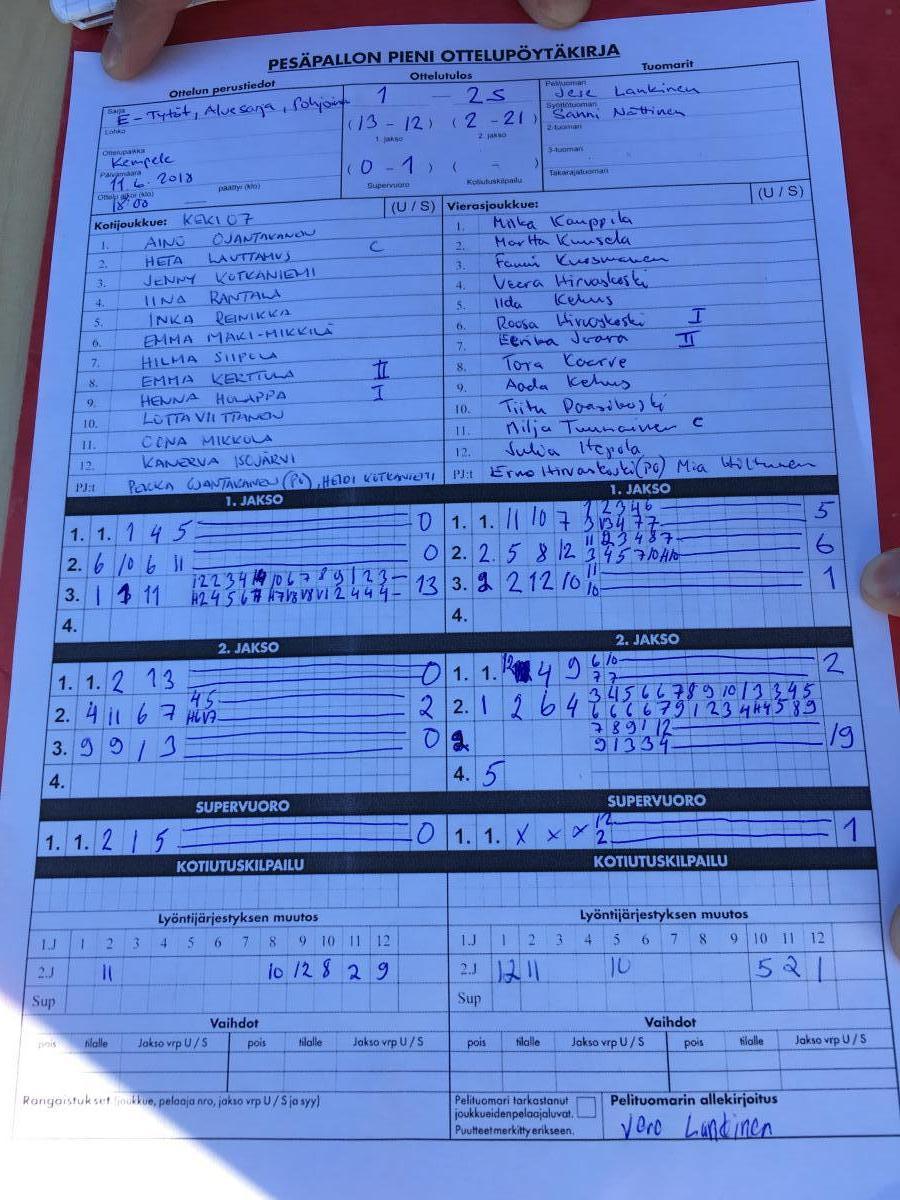 PESÄPALLON PIENI OTTELUPÖYTÄKIRJA
Ottelun perustiedot
Ottelutulos
Tuomarit
Sarja
E-Tytöt, Aluesarja, Pohjoinen
Lohko
Ottelupaikka
Kempele
Päivämäärä
11.6.2018
Ottelu alkoi (klo)
päättyi (klo)
18:00
1 - 2S
(13 - 12) (2 - 21)
1. jakso 2. jakso
(0 - 1) ( - )
Supervuoro Kotiutuskilpailu
Pelituomari
Jese Lankinen
Syöttötuomari
Sanni Nättinen
2-tuomari
3-tuomari
Takarajatuomari
Kotijoukkue: KEKI 07 (U / S)
1. AINO OJANTAKANEN
2. HETA LAUTTAMUS C
3. JENNY KOTKANIEMI
4. IINA RANTALA
5. INKA REINIKKA
6. EMMA MÄKI-MIKKILÄ
7. HILMA SIIPOLA
8. EMMA KERTTULA II
9. HENNA HOLAPPA I
10. LOTTA VIITTANEN
11. OONA MIKKOLA
12. KANERVA ISOJÄRVI
PJ:t PEKKA OJANTAKANEN (PJ), HEIDI KOTKANIEMI
Vierasjoukkue: (U / S)
1. Milka Kauppila
2. Martta Kuusela
3. Fanni Kuosmanen
4. Veera Hirvaskoski
5. Iida Kehus
6. Roosa Hirvaskoski I
7. Eerika Juara II
8. Tora Kaarre
9. Aada Kehus
10. Tiitu Paasikoski
11. Milja Tuunainen C
12. Julia Itepola
PJ:t Erno Hirvaskoski (PJ) Mia Hiltunen
1. JAKSO
1. 1. 1 4 5 0
2. 6 10 6 11 0
3. 1 1 11 13
4.
1. JAKSO
1. 1. 11 10 7 5
2. 2. 5 8 12 6
3. 2 2 12 10 11 10 1
4.
2. JAKSO
1. 1. 2 1 3 0
2. 4 11 6 7 4 5 2
3. 9 9 1 3 0
4.
2. JAKSO
1. 1. 12 4 9 6 10 7 7 2
2. 1 2 6 4 3 4 5 6 6 7 8 9 10 1 3 3 4 5
7 8 9 1 12
9 1 3 3 4 19
4. 5
SUPERVUORO
1. 1. 2 1 5 0
SUPERVUORO
1. 1. x x x 12 2 1
KOTIUTUSKILPAILU
KOTIUTUSKILPAILU
Lyöntijärjestyksen muutos
1.J 1 2 3 4 5 6 7 8 9 10 11 12
2.J 11 10 12 8 2 9
Sup
Lyöntijärjestyksen muutos
1.J 1 2 3 4 5 6 7 8 9 10 11 12
2.J 12 11 10 5 2 1
Sup
Vaihdot
pois tilalle Jakso vrp U / S pois tilalle Jakso vrp U / S
Vaihdot
pois tilalle Jakso vrp U / S pois tilalle Jakso vrp U / S
Rangaistukset (joukkue, pelaaja nro, jakso vrp U / S ja syy)
Pelituomari tarkastanut
joukkueidenpelaajaluvat.
Puutteetmerkitty erikseen.
Pelituomarin allekirjoitus
Lankinen